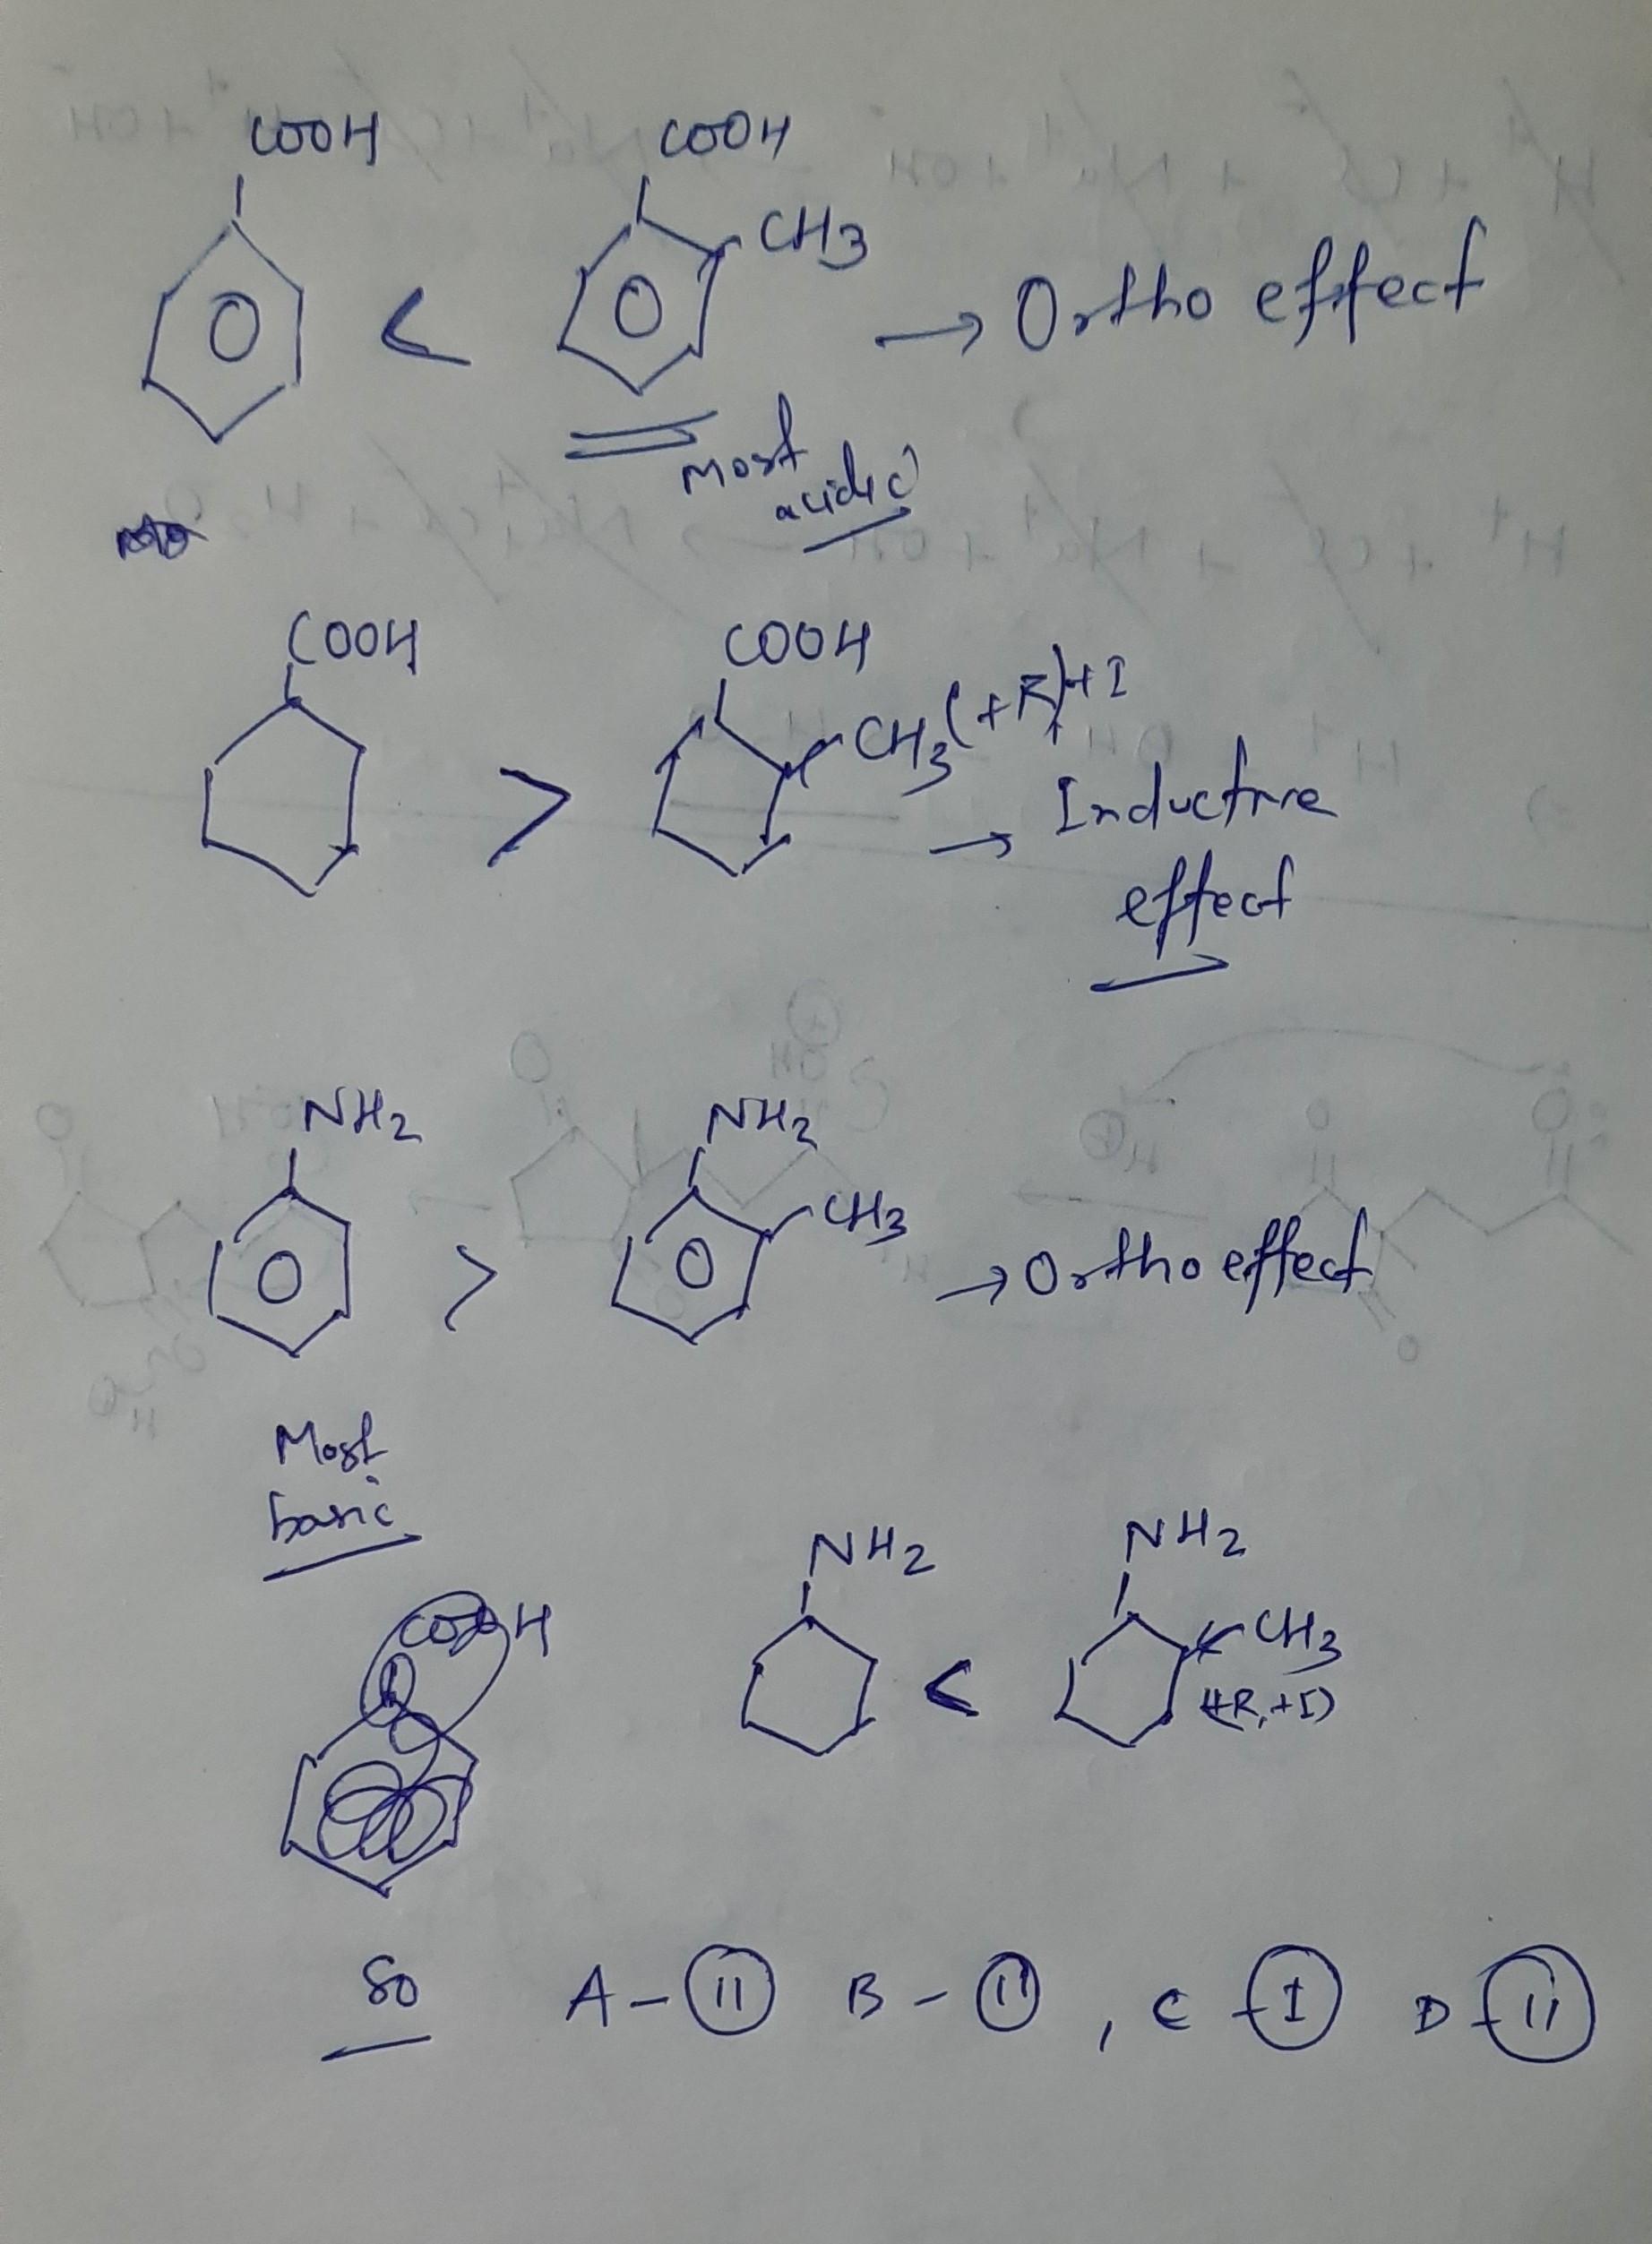 COOH COOH
CH3
< → Ortho effect
Most
acidic
COOH COOH
CH3 (+R) +I
> → Inductive
effect
NH2 NH2
CH3
> → Ortho effect
Most
basic
NH2 NH2
COOH
CH3
<
(+R, +I)
So A - II B - II , C - I D - II